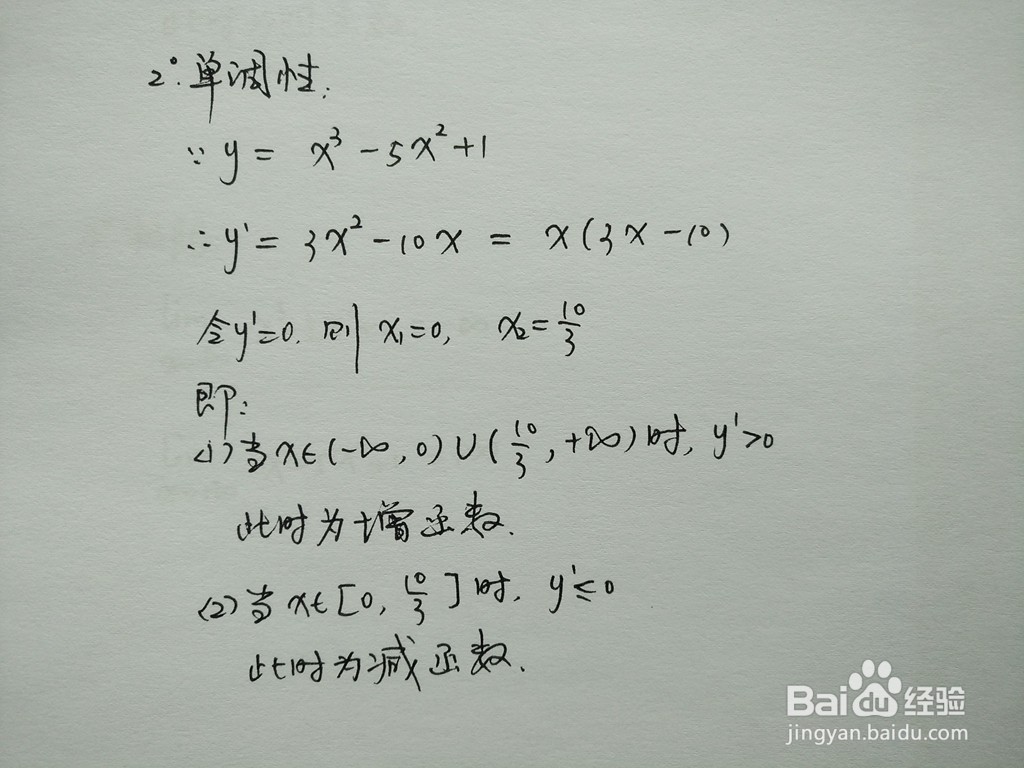 2°.单调性:
∵ y = x³ - 5x² + 1
∴ y' = 3x² - 10x = x(3x - 10)
令y'=0. 则 x₁=0, x₂=10/3
即:
(1)当x∈(-∞,0)∪(10/3,+∞)时, y'>0
此时为增函数.
(2)当x∈[0,10/3]时, y'≤0
此时为减函数.
Baidu经验
jingyan.baidu.com